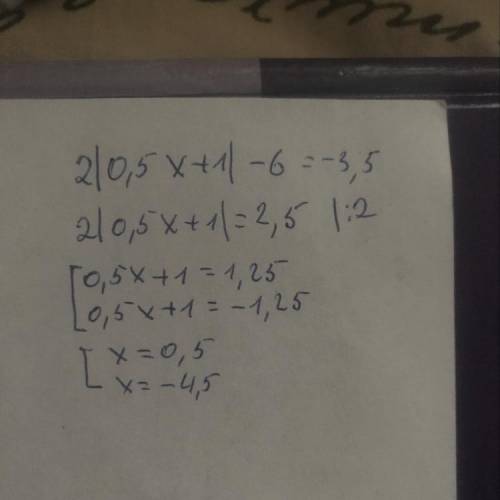 2|0,5x+1|-6=-3,5
2|0,5x+1|=2,5 |:2
[0,5x+1=1,25
0,5x+1=-1,25
[x=0,5
x=-4,5